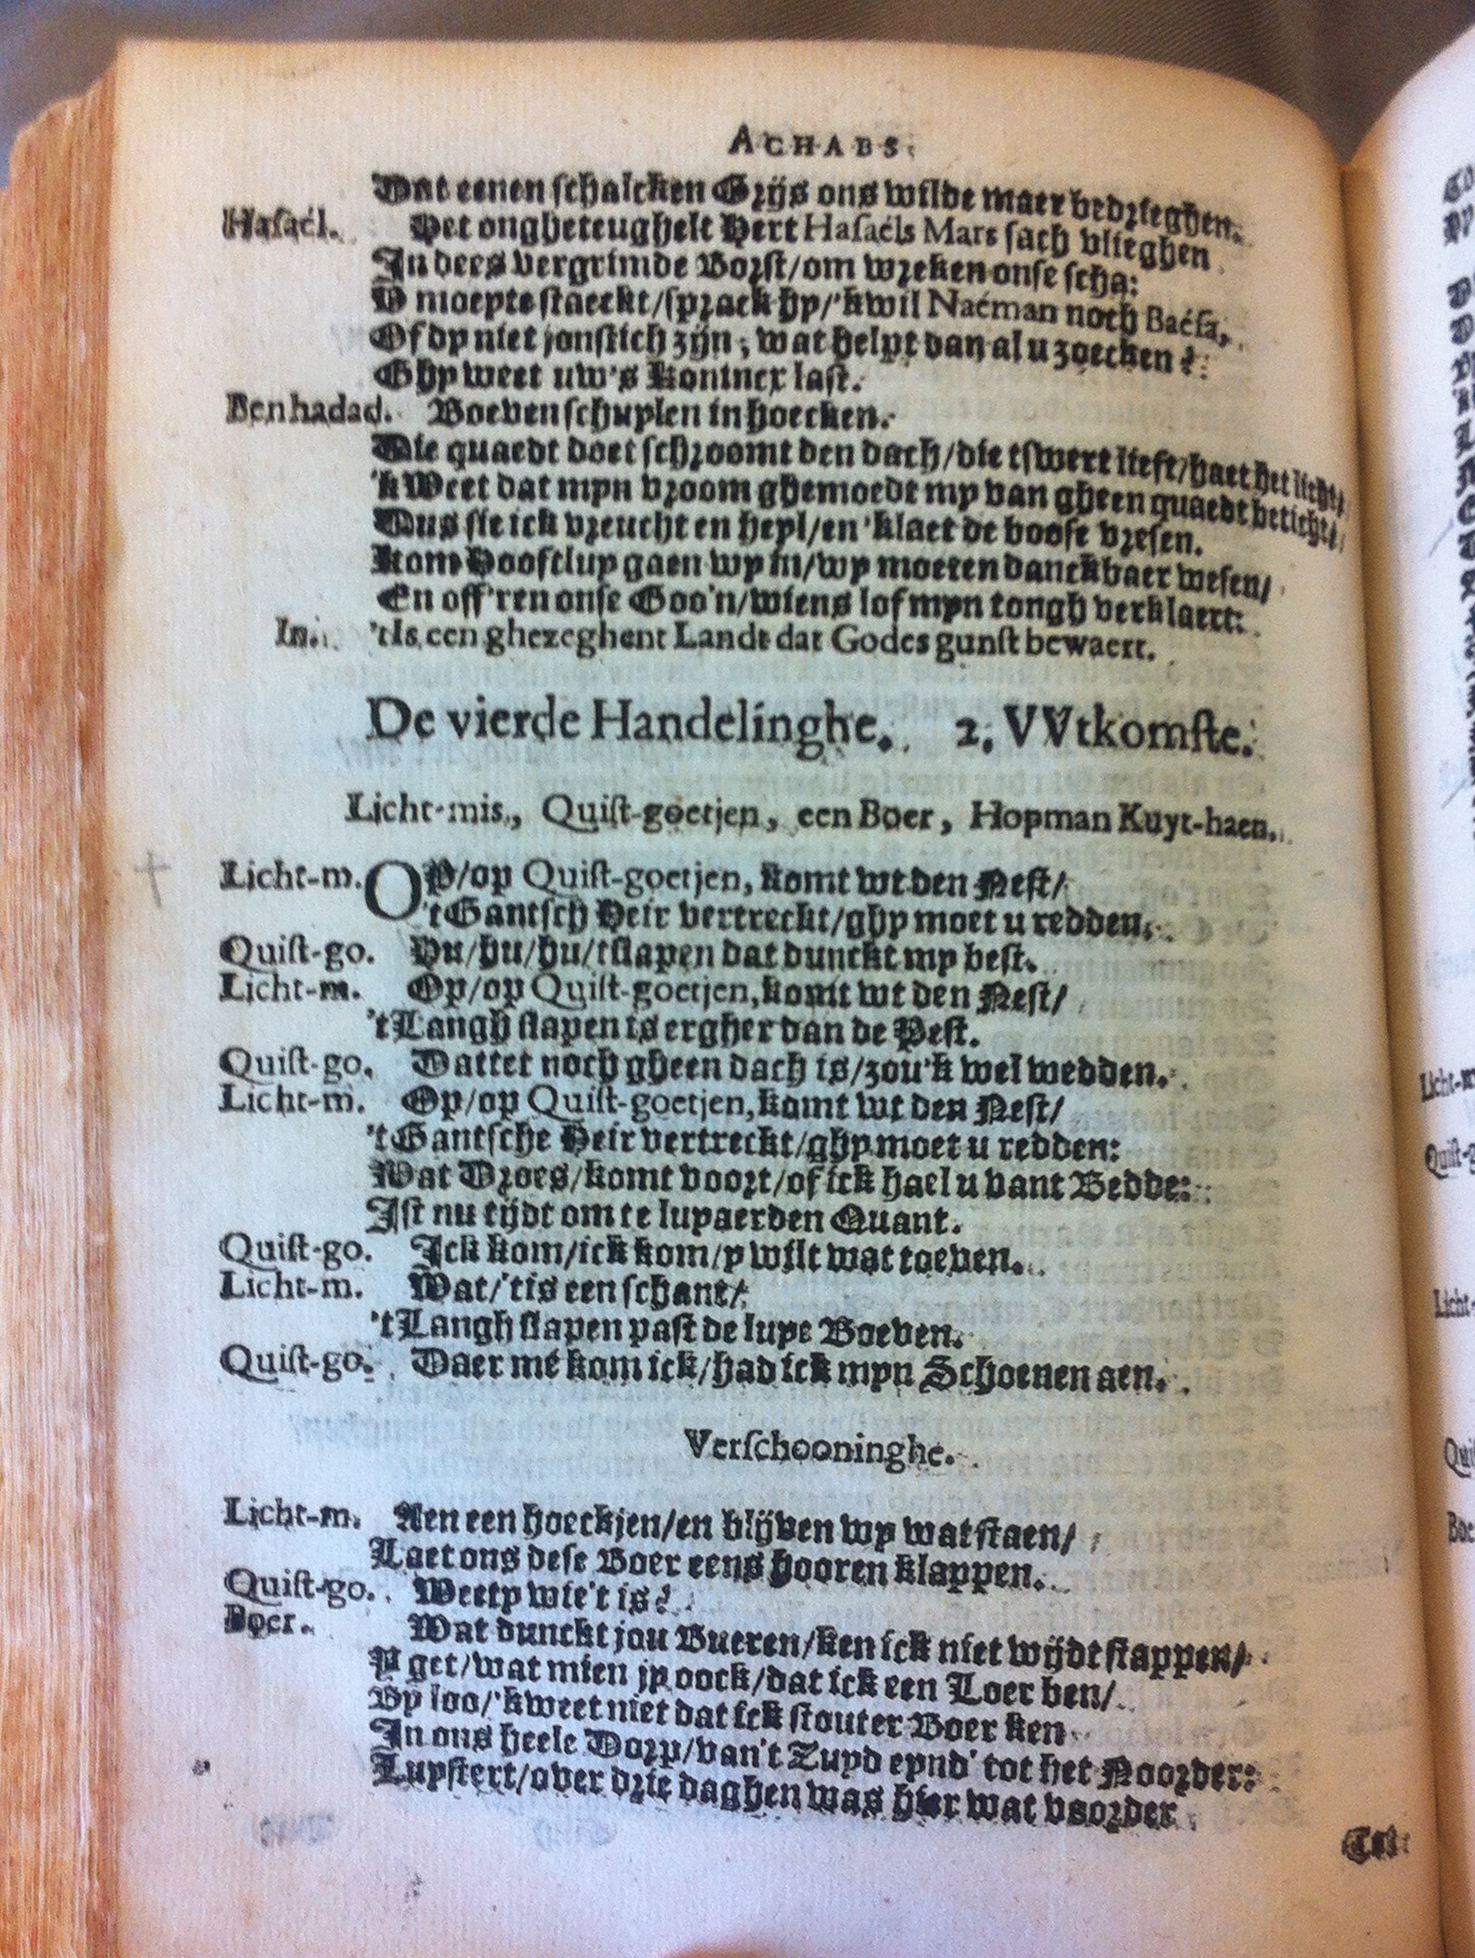 ACHABS.
Dat eenen schalcken Grijs ons wilde maer bedrieghen.
Hasaél. Het ongheteughelt Hert Hasaéls Mars sach vlieghen
In dees vergrimde Borst/om wreken onse scha:
O moeyte staeckt/sprack hy/'kwil Naéman noch Baésa,
Of dy niet jonstich zijn, wat helpt dan al u zoecken?
Ghy weet uw's Konincx last.
Benhadad. Boeven schuylen in hoecken.
Die quaedt doet schroomt den dach/die tswert lieft/haet het licht/
'k Weet dat myn vroom ghemoedt my van gheen quaedt beticht/
Dus sie ick vreucht en heyl/en 'klaet de boose vresen.
Kom Hooftluy gaen wy in/wy moeten danckbaer wesen/
En off'ren onse Goo'n/wiens lof myn tongh verklaert:
In. 'tIs een ghezeghent Landt dat Godes gunst bewaert.
De vierde Handelinghe. 2. VVtkomste.
Licht-mis, Quist-goetjen, een Boer, Hopman Kuyt-haen.
Licht-m. OP/op Quist-goetjen, komt wt den Nest/
't Gantsch Heir vertreckt/ghy moet u redden.
Quist-go. Hu/hu/hu/tslapen dat dunckt my best.
Licht-m. Op/op Quist-goetjen, komt wt den Nest/
't Langh slapen is ergher dan de Pest.
Quist-go. Dattet noch gheen dach is/zou'k wel wedden.
Licht-m. Op/op Quist-goetjen, komt wt den Nest/
't Gantsche Heir vertreckt/ghy moet u redden:
Wat Droes/komt voort/of ick hael u vant Bedde:
Ist nu tijdt om te luyaerden Quant.
Quist-go. Ick kom/ick kom/y wilt wat toeven.
Licht-m. Wat/'tis een schant/
't Langh slapen past de luye Boeven.
Quist-go. Daer mé kom ick/had ick myn Schoenen aen.
Verschooninghe.
Licht-m. Aen een hoeckjen/en blijven wy wat staen/
Laet ons dese Boer eens hooren klappen.
Quist-go. Weety wie't is?
Boer. Wat dunckt jou Bueren/ken ick niet wijdt stappen/
Y get/wat mien jy oock/dat ick een Loer ben/
By loo/'kweet niet dat ick stouter Boer ken
In ons heele Dorp/van't Zuyd eynd' tot het Noorder:
Luystert/over drie daghen was hier wat voorder